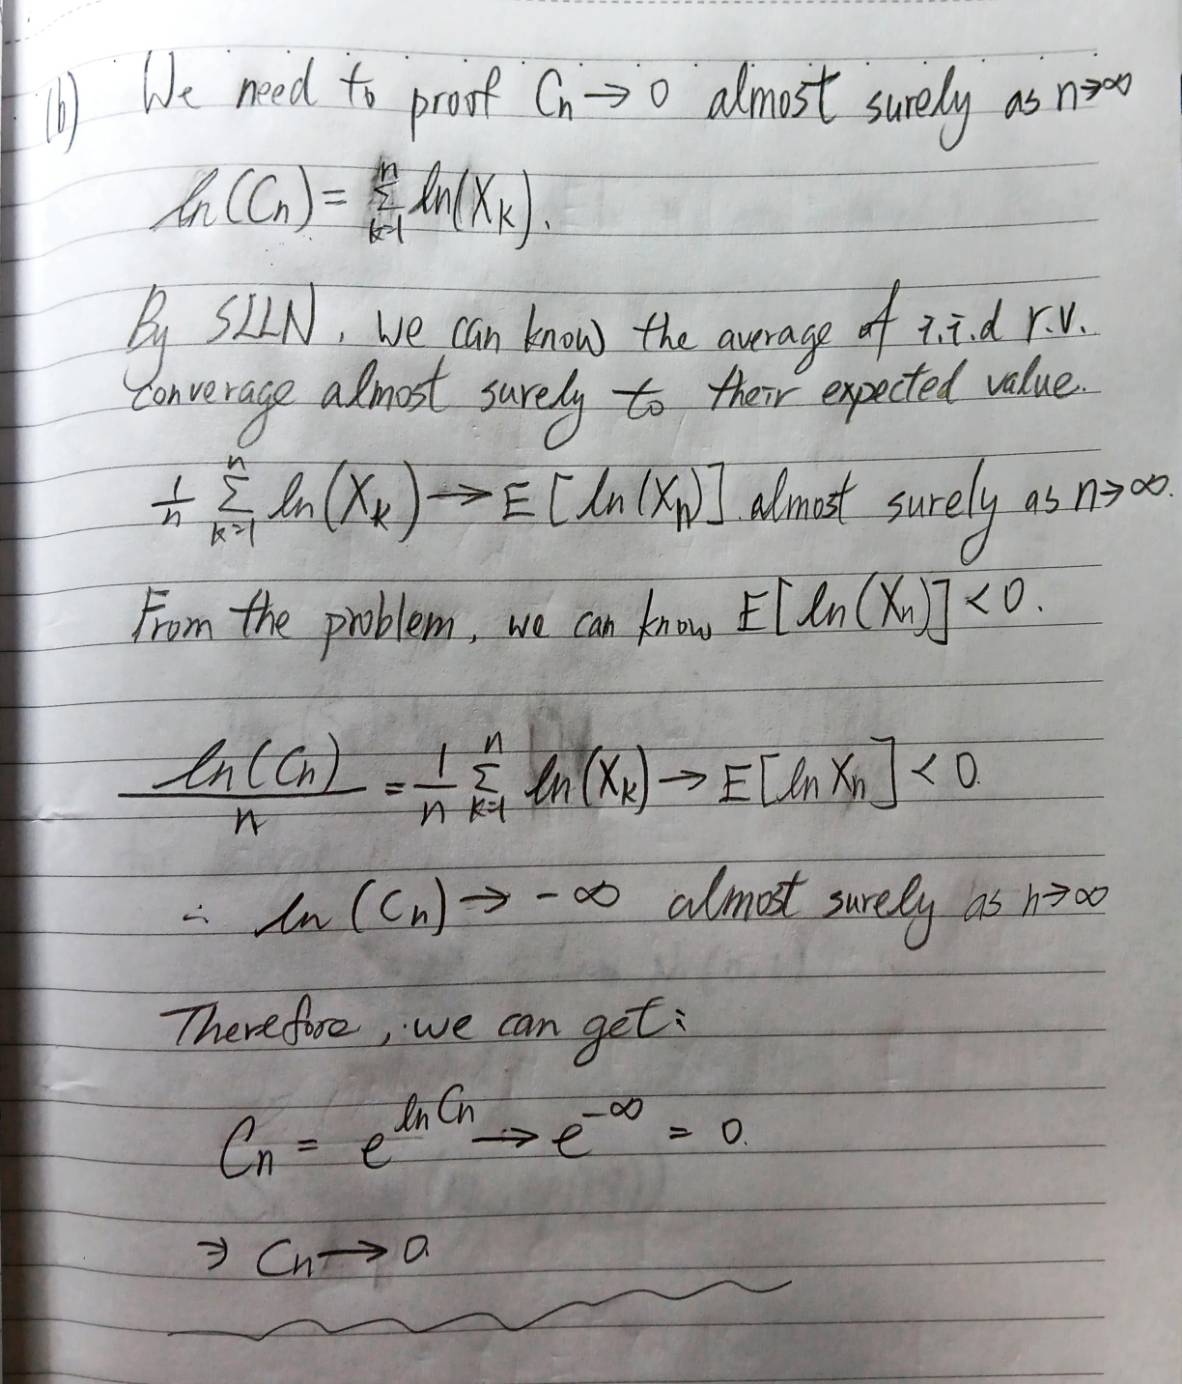 (b) We need to proof Cn → 0 almost surely as n→∞
ln(Cn) = Σ_{k=1}^{n} ln(X_k).
By SLLN, we can know the average of i.i.d r.v.
converage almost surely to their expected value.
1/n Σ_{k=1}^{n} ln(X_k) → E[ln(Xn)] almost surely as n→∞.
From the problem, we can know E[ln(Xn)] < 0.
ln(Cn)/n = 1/n Σ_{k=1}^{n} ln(X_k) → E[ln Xn] < 0.
∴ ln(Cn) → -∞ almost surely as n→∞
Therefore, we can get:
Cn = e^{ln Cn} → e^{-∞} = 0.
⇒ Cn → 0.